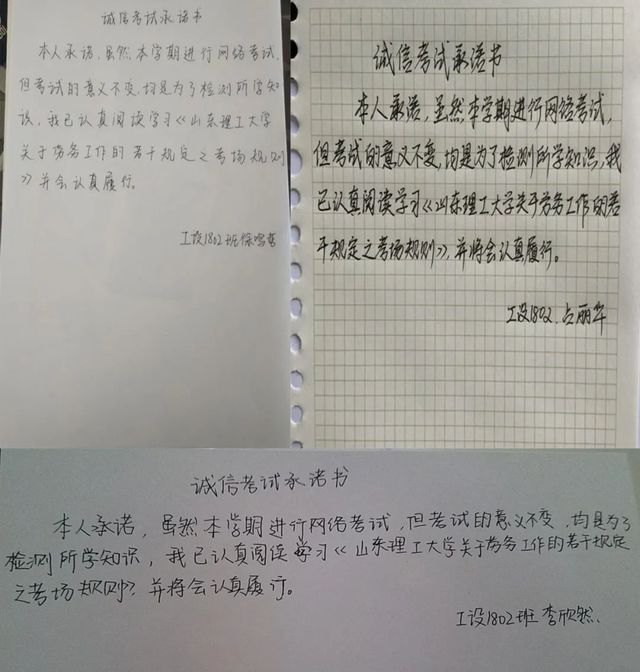 诚信考试承诺书
本人承诺,虽然本学期进行网络考试,
但考试的意义不变,均是为了检测所学知
识,我已认真阅读学习《山东理工大学
关于考务工作的若干规定之考场规则
》并会认真履行。
工设1802班徐
诚信考试承诺书
本人承诺,虽然本学期进行网络考试,
但考试的意义不变,均是为了检测所学知识,我
已认真阅读学习《山东理工大学关于考务工作的若
干规定之考场规则》,并将会认真履行。
工设1802.占丽华
诚信考试承诺书
本人承诺,虽然本学期进行网络考试,但考试的意义不变,均是为了
检测所学知识,我已认真阅读学习《山东理工大学关于考务工作的若干规定
之考场规则》并将会认真履行。
工设1802班李欣然